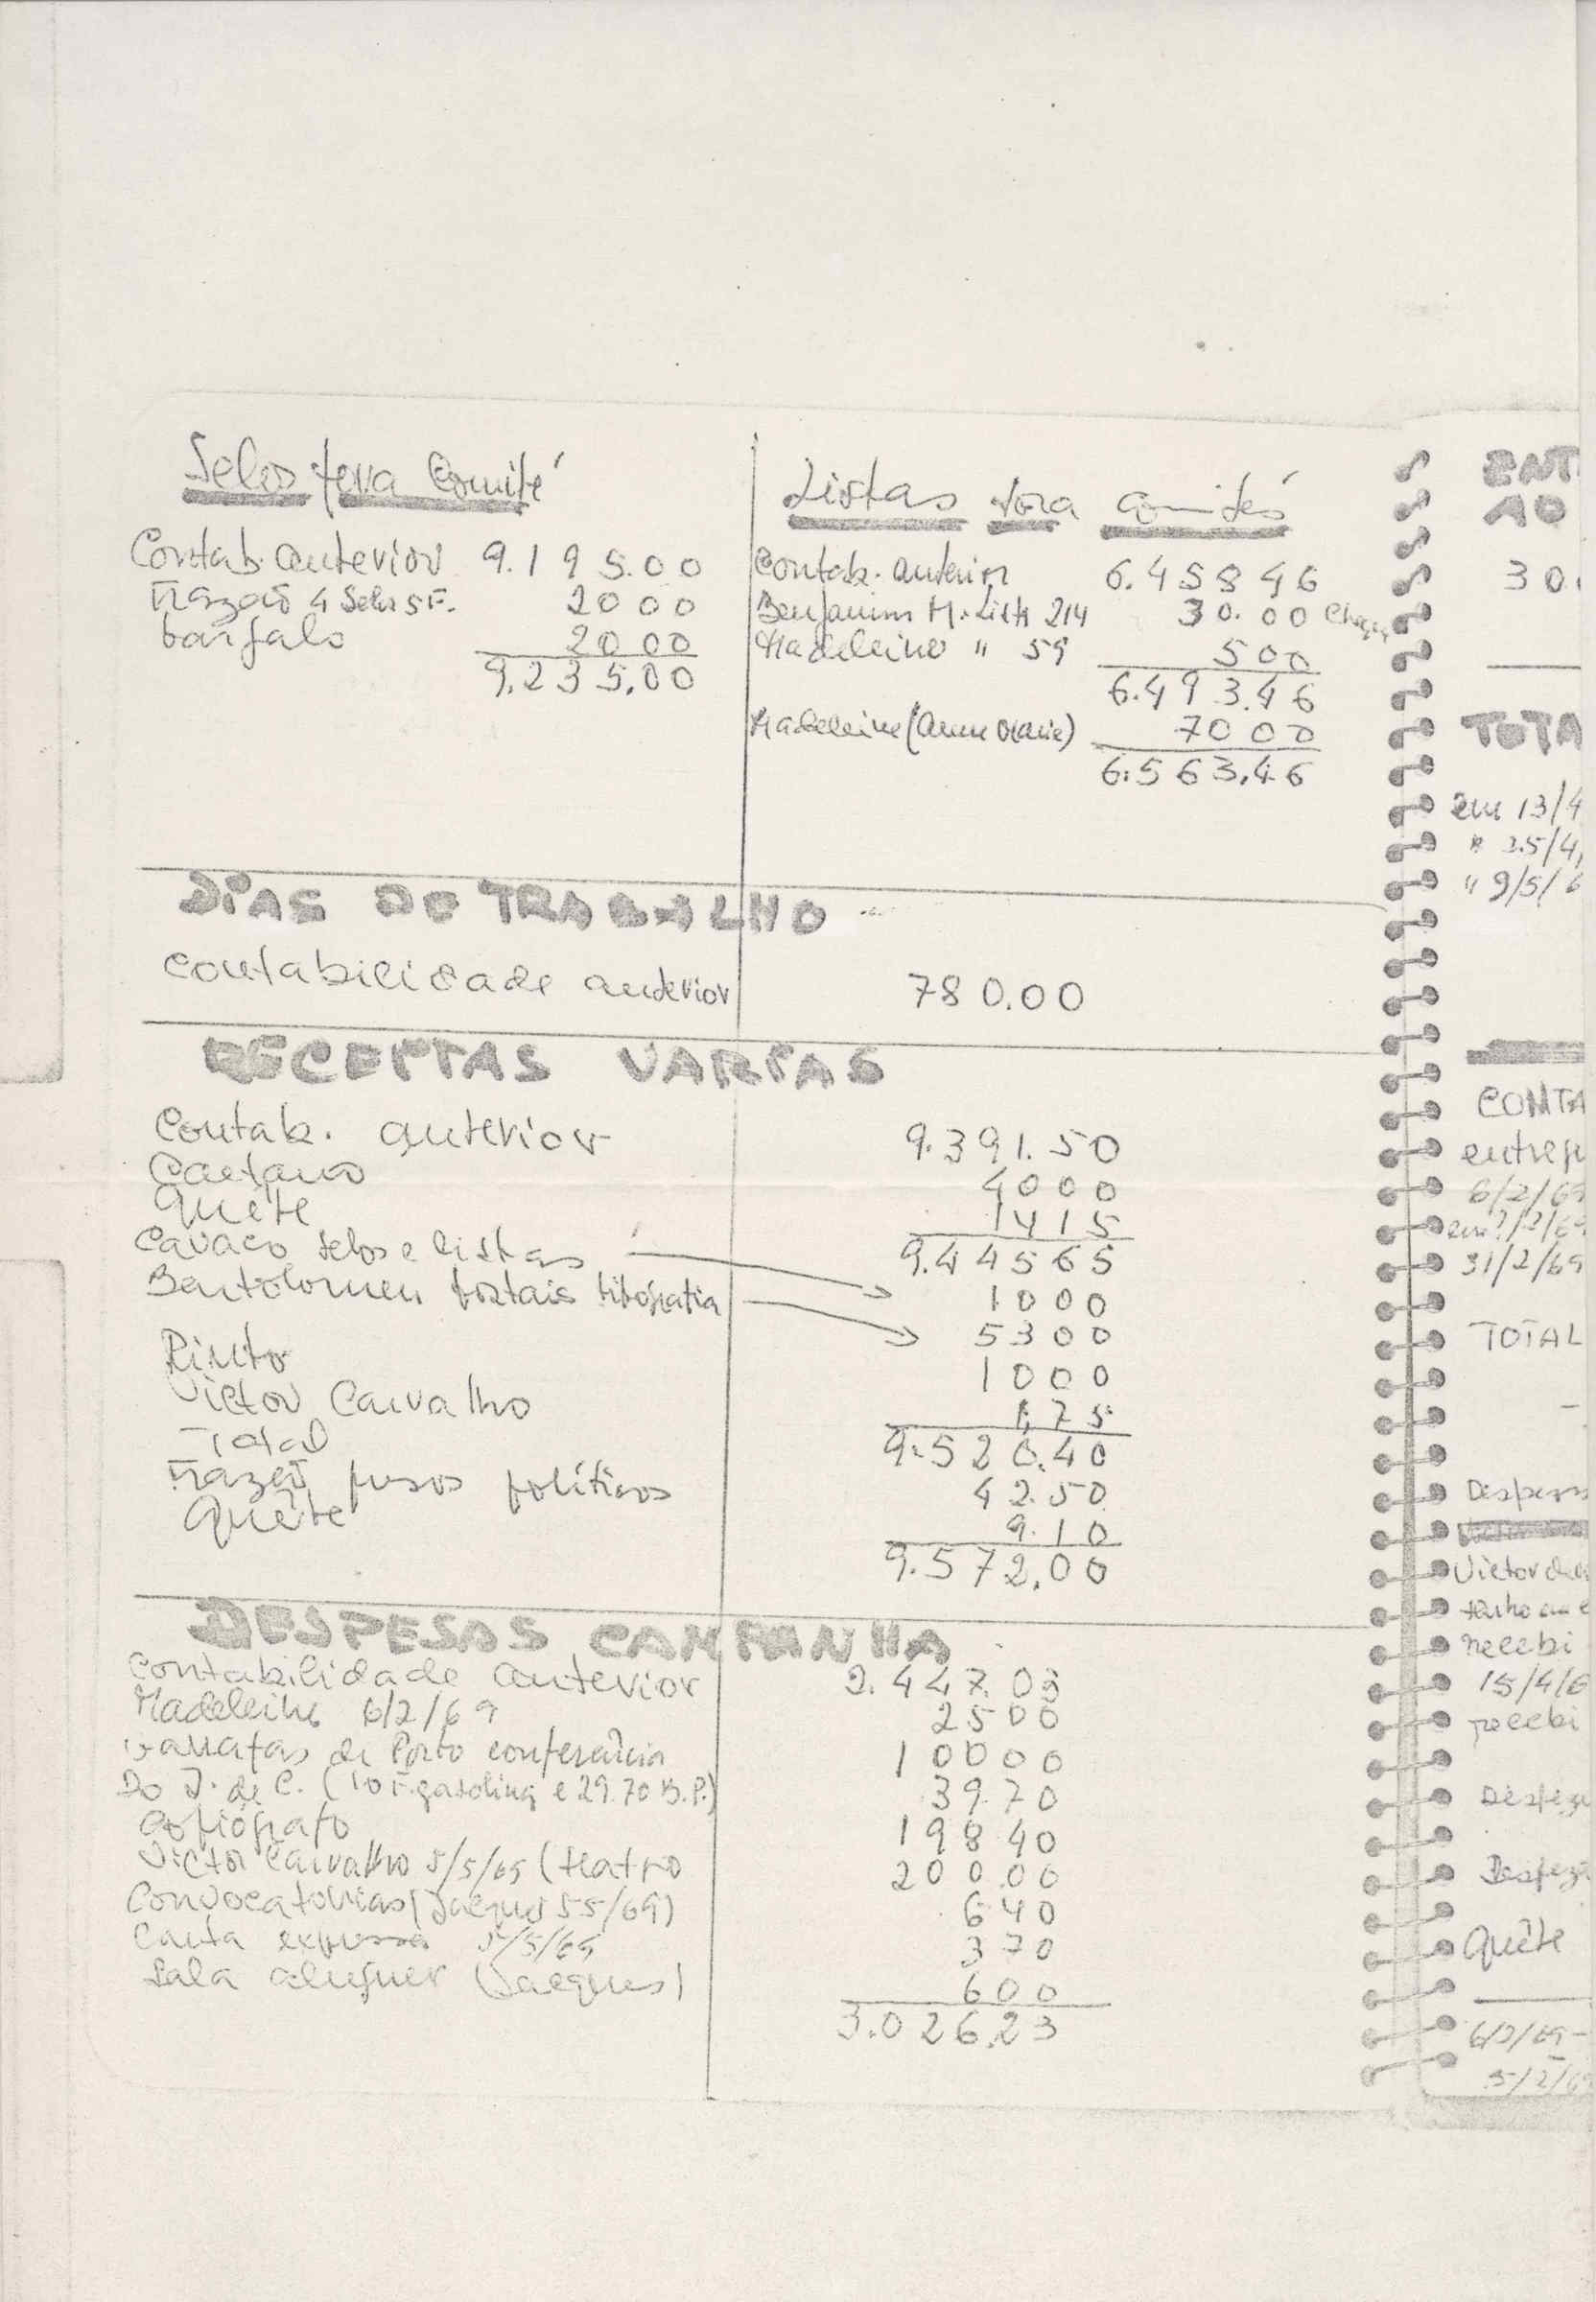 Selos fora Comité
Contab. anterior 9.195.00
Frazão 4 Selos 5 F. 2000
2000
9.235.00
Listas fora Comités
Contab. anterior 6.458 46
Benjamim M. Lista 214 30.00
Madeleine " 59 500
6.493.46
Madeleine (Anne Marie) 7000
6.563.46
DIAS DO TRABALHO
Contabilidade anterior 780.00
RECEITAS VARIAS
Contab. anterior 9.391.50
Caetano 4000
Quête 1415
9.44565
Cavaco selos e listas 1000
Bartolomeu postais tipografia 5300
Pinto 1000
Victor Carvalho 1,75
Total 9.520.40
Frazão presos políticos 42.50
Quête 9.10
9.572.00
DESPESAS CAMPANHA
Contabilidade anterior 2.447.03
Madeleine 6/2/69 2500
de Porto conferência 10000
Do J. de C. (10 F. gasolina e 29.70 B.P.) 39.70
Copiógrafo 19840
Victor Carvalho 5/5/69 (teatro 200.00
Convocatórias (Jacques 5 5/69) 640
Carta expressa 5/5/69 370
Sala aluguer (Jacques) 600
3.026.23
ENT
AO
30
TOTA
em 13/4
" 25/4
" 9/5/6
CONTA
entreg
6/2/69
31/2/69
TOTAL
Despesas
Victor
recebi
15/4/6
recebi
Quête
6/2/69-
5/2/69